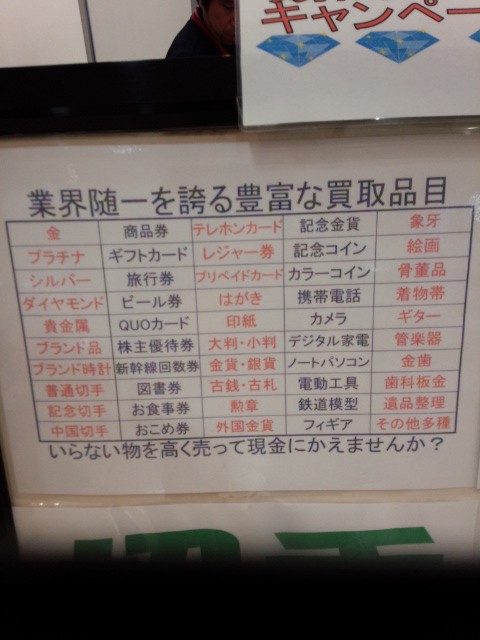 キャンペー
業界随一を誇る豊富な買取品目
金 商品券 テレホンカード 記念金貨 象牙
プラチナ ギフトカード レジャー券 記念コイン 絵画
シルバー 旅行券 プリペイドカード カラーコイン 骨董品
ダイヤモンド ビール券 はがき 携帯電話 着物帯
貴金属 QUOカード 印紙 カメラ ギター
ブランド品 株主優待券 大判・小判 デジタル家電 管楽器
ブランド時計 新幹線回数券 金貨・銀貨 ノートパソコン 金歯
普通切手 図書券 古銭・古札 電動工具 歯科板金
記念切手 お食事券 勲章 鉄道模型 遺品整理
中国切手 おこめ券 外国金貨 フィギア その他多種
いらない物を高く売って現金にかえませんか？